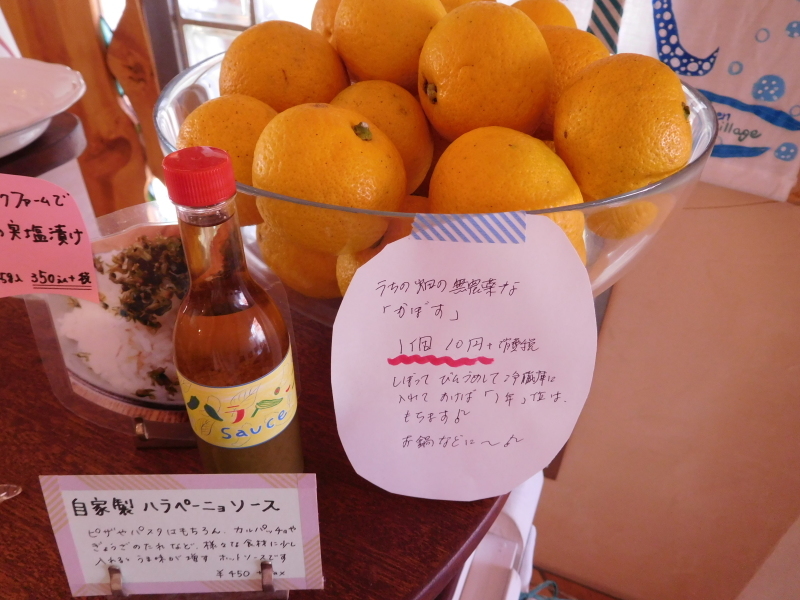 クファームで
実塩漬け
350
うちの畑の無農薬な
「かぼす」
1個 10円+消費税
しぼって びんづめして冷蔵庫に
入れて おけば「1年」位は、
もちます♪
お鍋などに〜♪
ハラ
Sauce
自家製 ハラペーニョソース
ピザやパスタはもちろん、カルパッチョや
ぎょうざのたれなど、様々な食材に少し
入れるとうま味が増す ホットソースです
¥450
Village